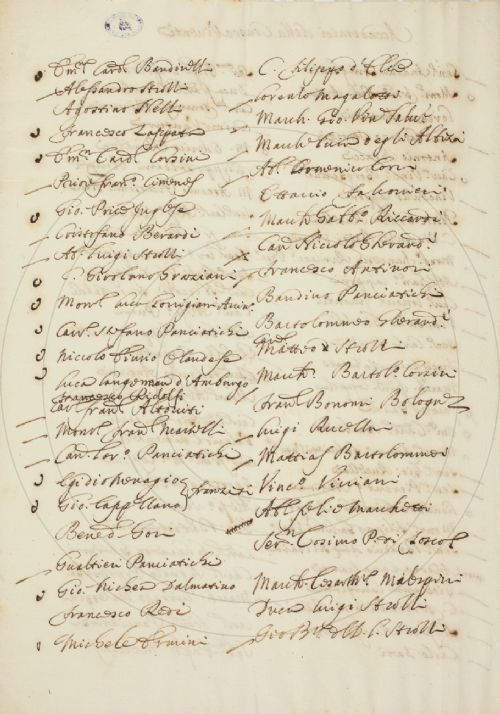 Em.º Card.l Bandinelli
Alessandro Strozzi
Agostino Nelli
Francesco
Em.º Card.l Corsini
Priore Fran.co Ximenes
Gio. Price Inglese
Cristofano Berardi
Ab. Luigi Strozzi
C. Girolamo Graziani
Mons.
Cav. Stefano Panciatichi
Niccolo Einsio Olandese
Luca d'Amburgo
Francesco Ridolfi
Cav. Fran.co Altoviti
Mons. Fran.co
Cav. Lor.o Panciatichi
Egidio Menagio
Gio. Cappellano
Franzesi
Bened. Gori
Gualtieri Panciatichi
Gio. Dalmatino
Francesco Redi
Michele Ermini
C. Filippo d'Elci
Lorenzo Magalotti
March. Gio. Vin. Salviati
March. Luca degli Albizi
Ab. Domenico Corsi
Ottavio Falconieri
March. Gabb.o Riccardi
Cav. Niccolo Gherard.i
Francesco Antinori
Bandino Panciatichi
Bartolommeo Gherard.i
Matteo Strozzi
March. Bartol.o Corsini
Fran.co Bononi Bologne
Luigi Rucellai
Mattias Bartolommei
Vinc.o Viviani
Ab. Felice Marchetti
Ser.mo Cosimo P. di Tosca
March.
Duca Luigi Strozzi
Gio B.a Strozzi